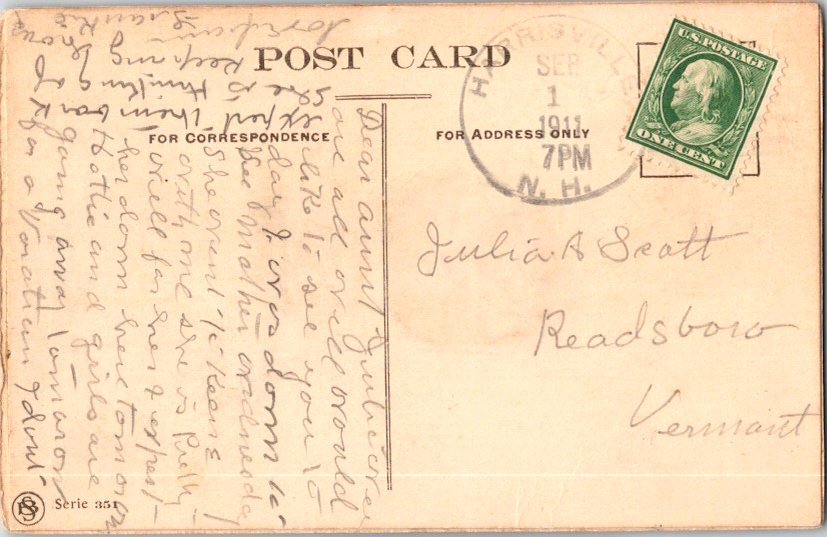 POST CARD
FOR CORRESPONDENCE
FOR ADDRESS ONLY
HARRISVILLE
SEP
1
1911
7PM
N. H.
U.S. POSTAGE
ONE CENT
Julia A Scott
Readsboro
Vermont
Dear aunt Julia
are all well would
like to see you
day I was down to
see Mother wednesday
She went to Keene
with me she is pretty
well for her I expect
her down here tomorrow
Hattie and girls are
going away tomorrow
for a Vacation I dont
expect them back
She is keeping house
Frankie
SB
Serie 351